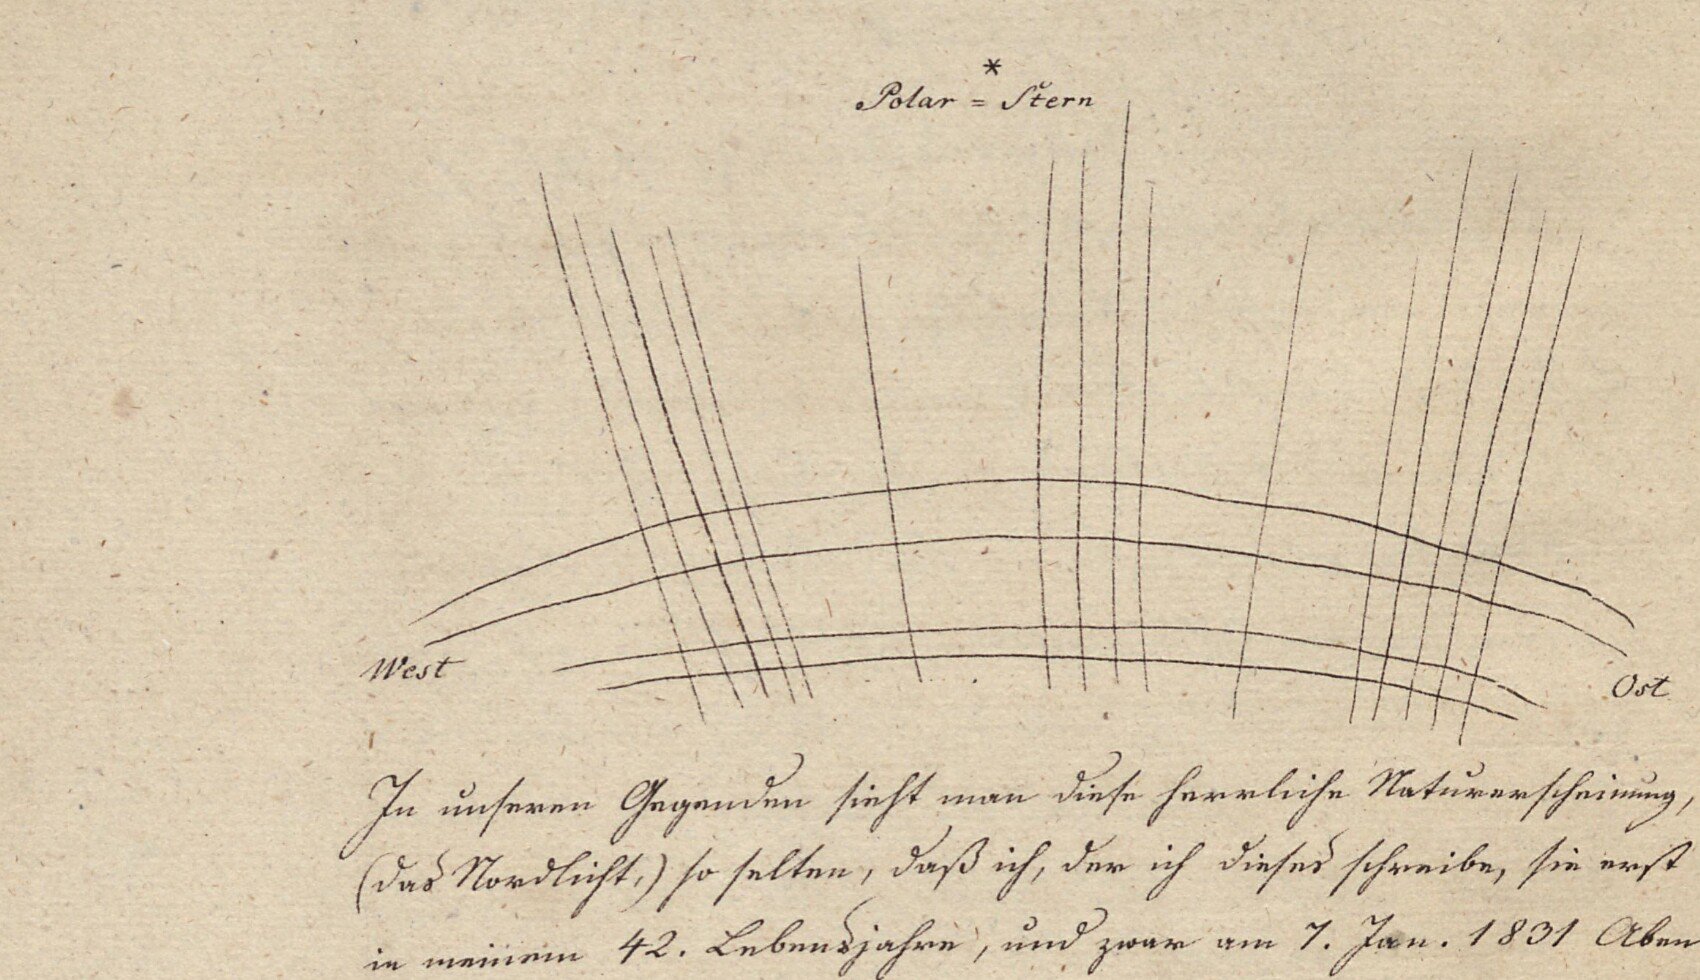 *
Polar = Stern
West
Ost
In unseren Gegenden sieht man diese herrliche Naturerscheinung,
(das Nordlicht,) so selten, daß ich, der ich dieses schreibe, sie erst
in meinem 42. Lebensjahre, und zwar am 7. Jan. 1831 Aben